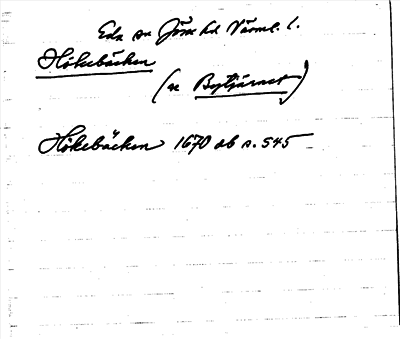 Eda sn Jösse hd Värml. l.
Hökebäcken
(se Bytjärnet)
Hökebäcken 1670 ab s. 545